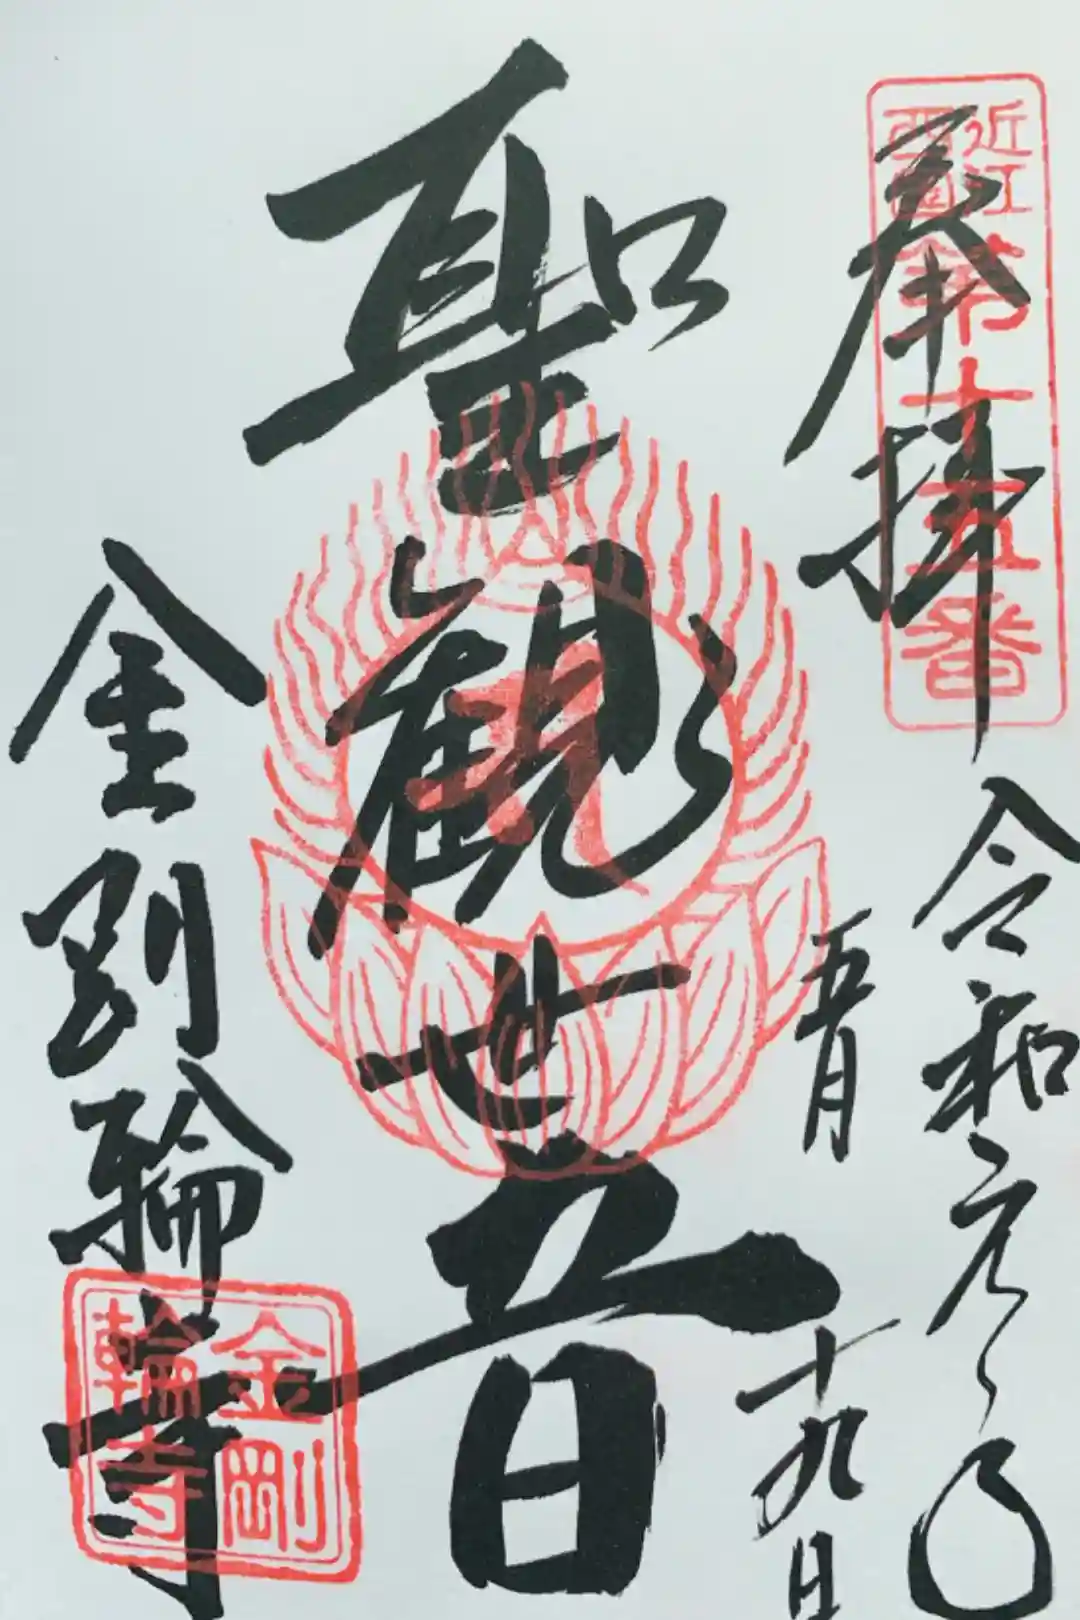 奉拝
近江
西國
第十五番
令和元年
五月
十九日
聖観世音
金剛輪寺
金剛
輪寺